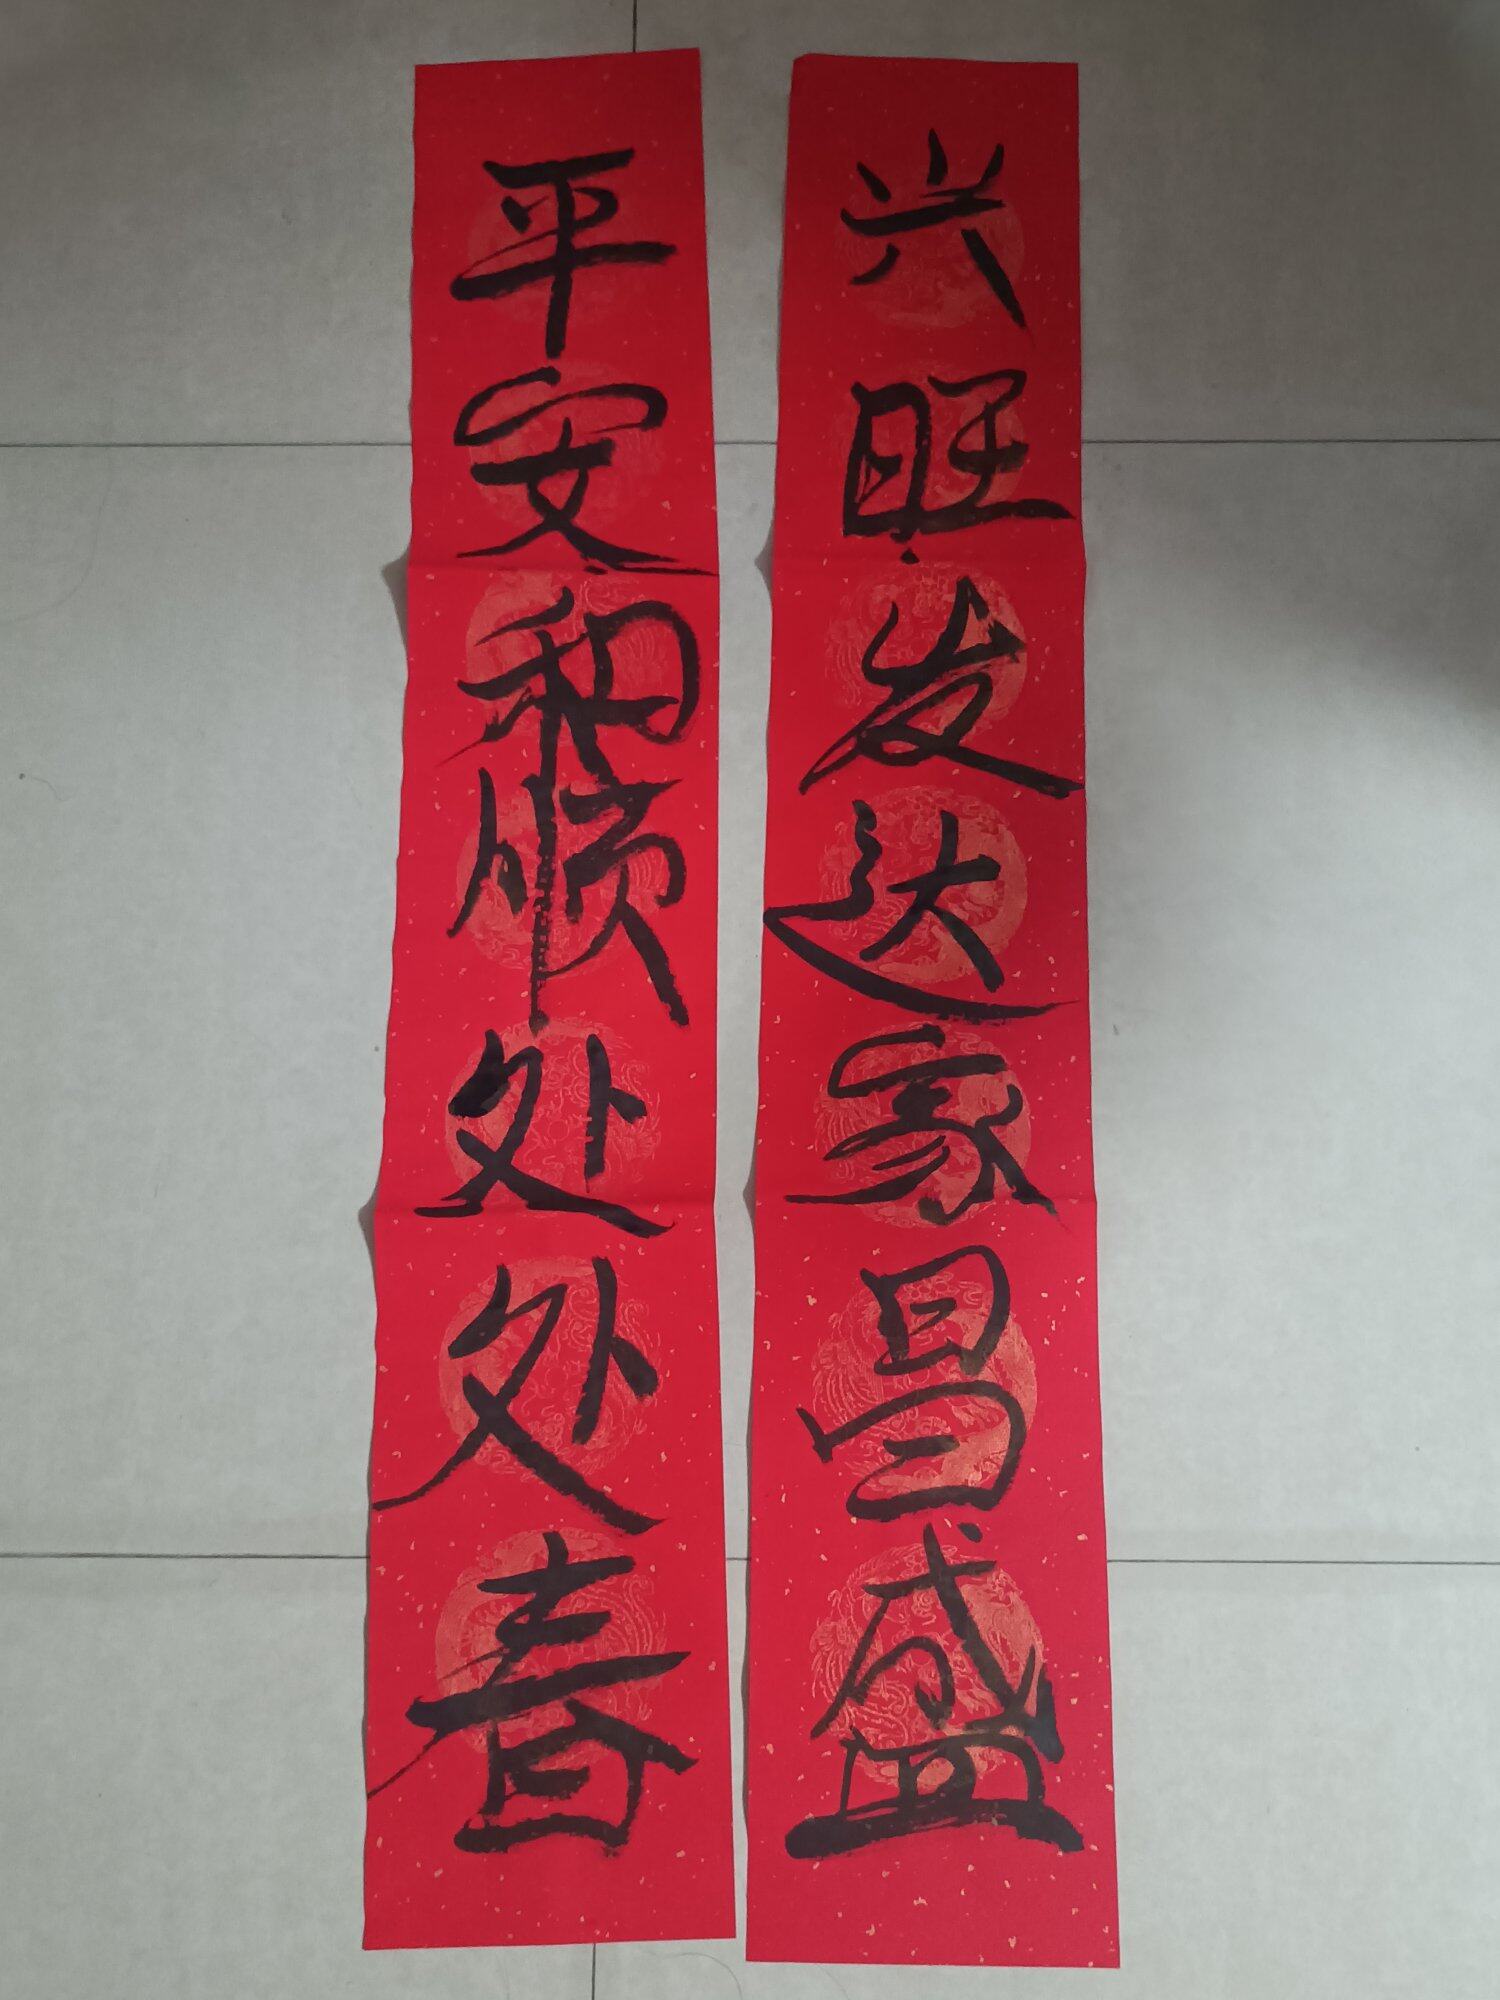 兴旺发达家昌盛
平安和顺处处春